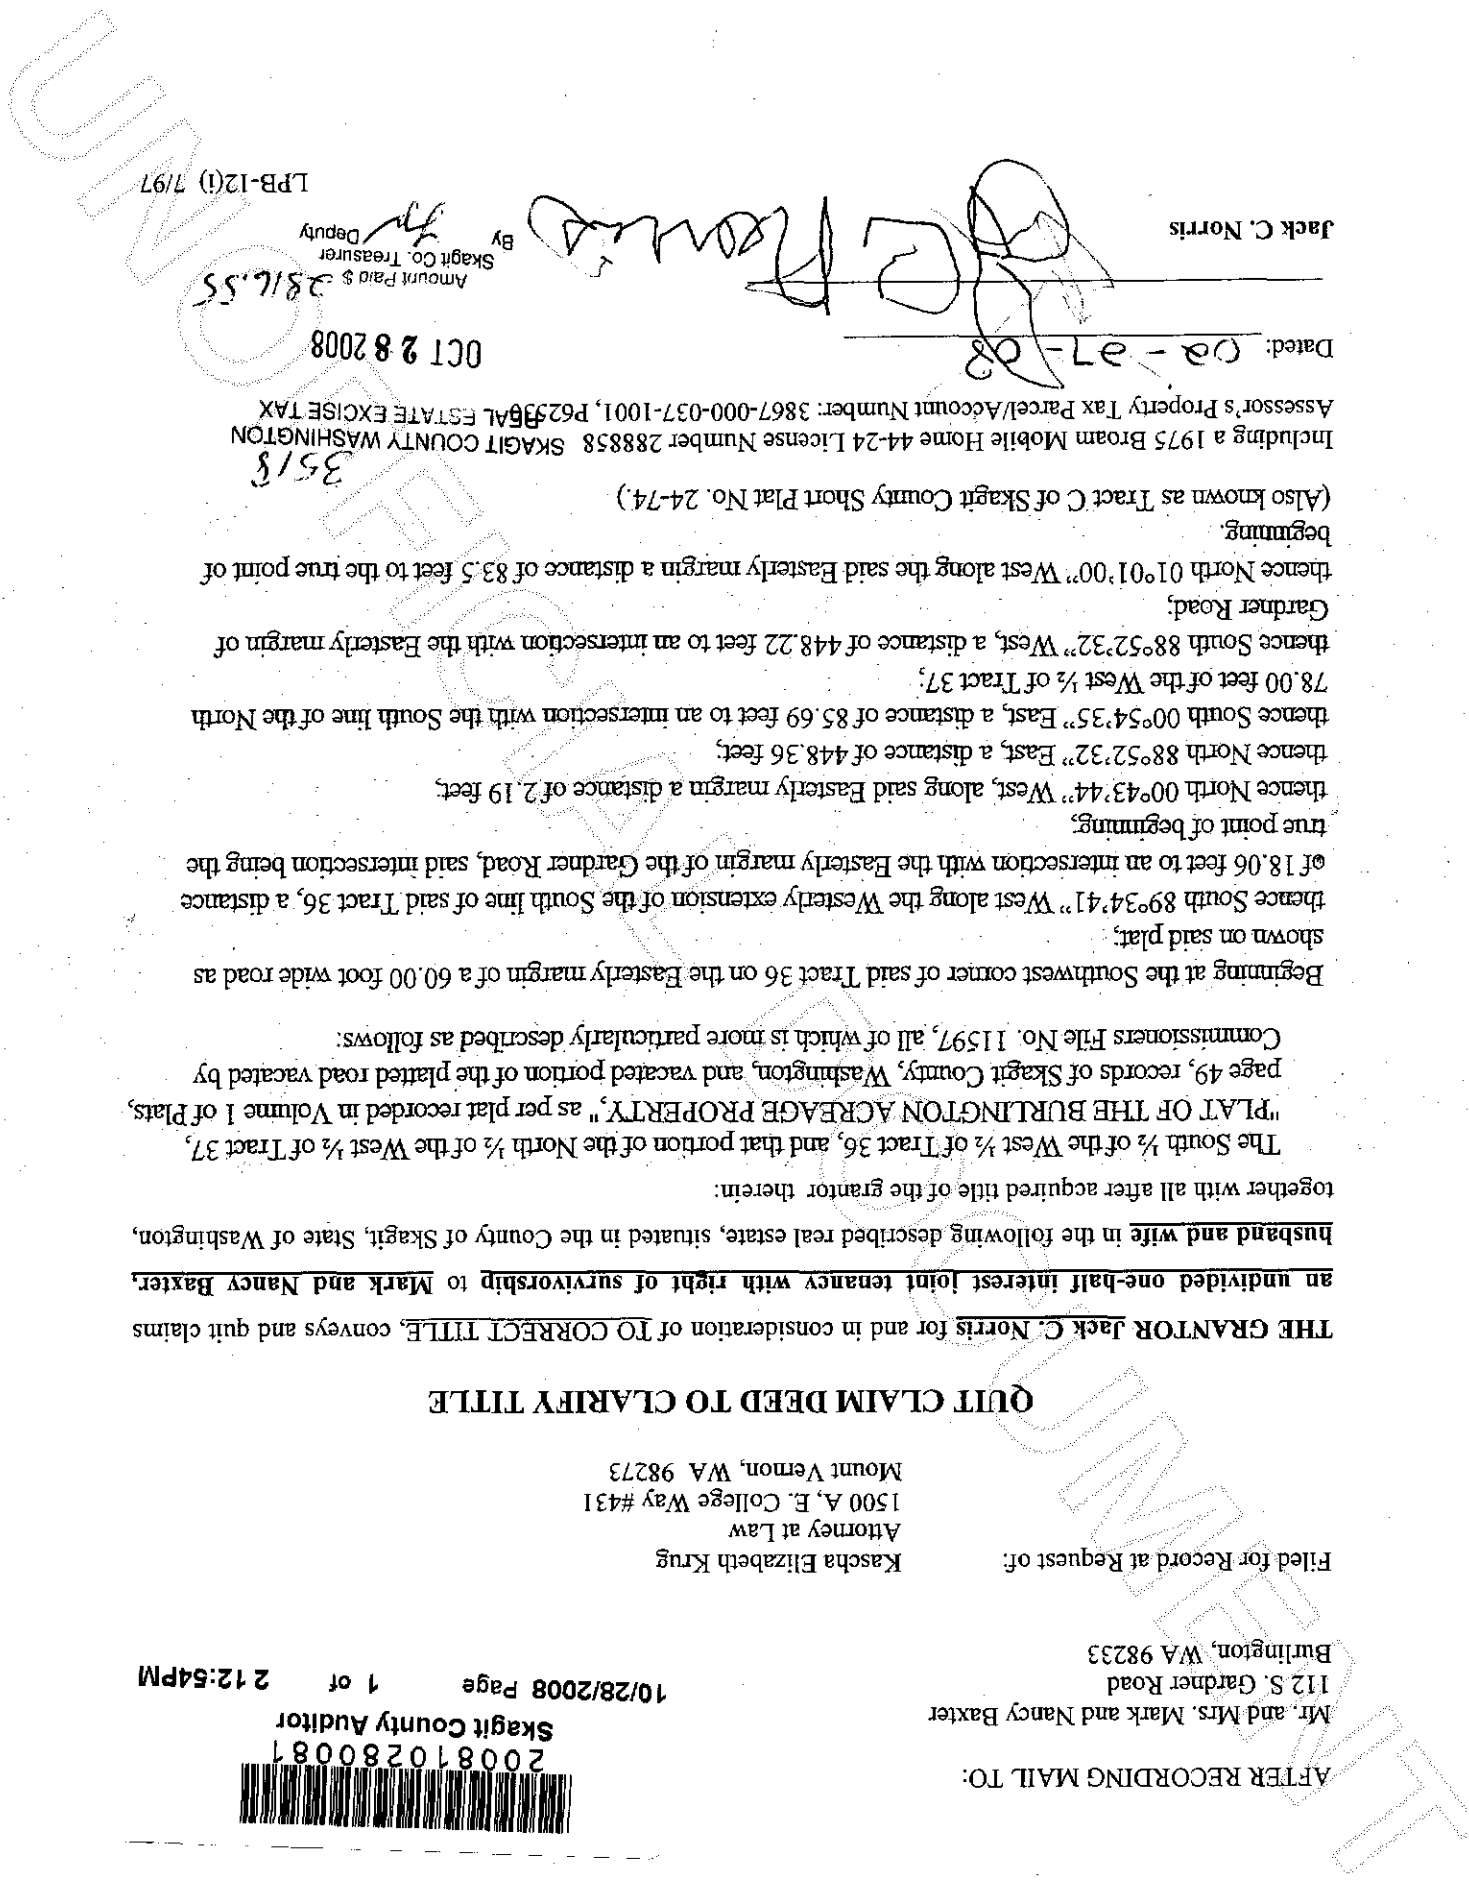 200810280081
Skagit County Auditor
10/28/2008 Page 1 of 1 2:12:54PM
AFTER RECORDING MAIL TO:
Mr. and Mrs. Mark and Nancy Baxter
112 S. Gardner Road
Burlington, WA 98233
Filed for Record at Request of: Kascha Elizabeth Krug
Attorney at Law
1500 A, E. College Way #431
Mount Vernon, WA 98273
QUIT CLAIM DEED TO CLARIFY TITLE
THE GRANTOR Jack C. Norris for and in consideration of TO CORRECT TITLE, conveys and quit claims
an undivided one-half interest joint tenancy with right of survivorship to Mark and Nancy Baxter,
husband and wife in the following described real estate, situated in the County of Skagit, State of Washington,
together with all after acquired title of the grantor therein:
The South ½ of the West ½ of Tract 36, and that portion of the North ½ of the West ½ of Tract 37,
"PLAT OF THE BURLINGTON ACREAGE PROPERTY," as per plat recorded in Volume 1 of Plats,
page 49, records of Skagit County, Washington, and vacated portion of the platted road vacated by
Commissioners File No. 11597, all of which is more particularly described as follows:
Beginning at the Southwest corner of said Tract 36 on the Easterly margin of a 60.00 foot wide road as
shown on said plat;
thence South 89°34'41" West along the Westerly extension of the South line of said Tract 36, a distance
of 18.06 feet to an intersection with the Easterly margin of the Gardner Road, said intersection being the
true point of beginning;
thence North 00°43'44" West, along said Easterly margin a distance of 2.19 feet;
thence North 88°52'32" East, a distance of 448.36 feet;
thence South 00°54'35" East, a distance of 85.69 feet to an intersection with the South line of the North
78.00 feet of the West ½ of Tract 37;
thence South 88°52'32" West, a distance of 448.22 feet to an intersection with the Easterly margin of
Gardner Road;
thence North 01°01'00" West along the said Easterly margin a distance of 83.5 feet to the true point of
beginning.
(Also known as Tract C of Skagit County Short Plat No. 24-74.)
3518
Including a 1975 Broam Mobile Home 44-24 License Number 288858 SKAGIT COUNTY WASHINGTON
Assessor's Property Tax Parcel/Account Number: 3867-000-037-1001, REAL ESTATE EXCISE TAX
Dated: OCT 28 2008
Amount Paid $ 2816.55
Skagit Co. Treasurer
By Deputy
Jack C. Norris
LPB-12(i) 7/97
UNOFFICIAL DOCUMENT